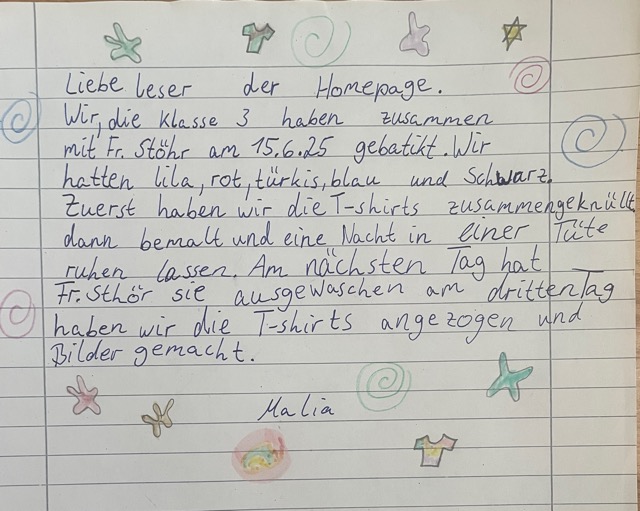 Liebe leser der Homepage.
Wir, die klasse 3 haben zusammen
mit Fr. Stöhr am 15.6.25 gebatikt. Wir
hatten lila, rot, türkis, blau und Schwarz.
Zuerst haben wir die T-shirts zusammengeknüllt
dann bemalt und eine Nacht in einer Tüte
ruhen lassen. Am nächsten Tag hat
Fr. Sthör sie ausgewaschen am dritten Tag
haben wir die T-shirts angezogen und
Bilder gemacht.
Malia